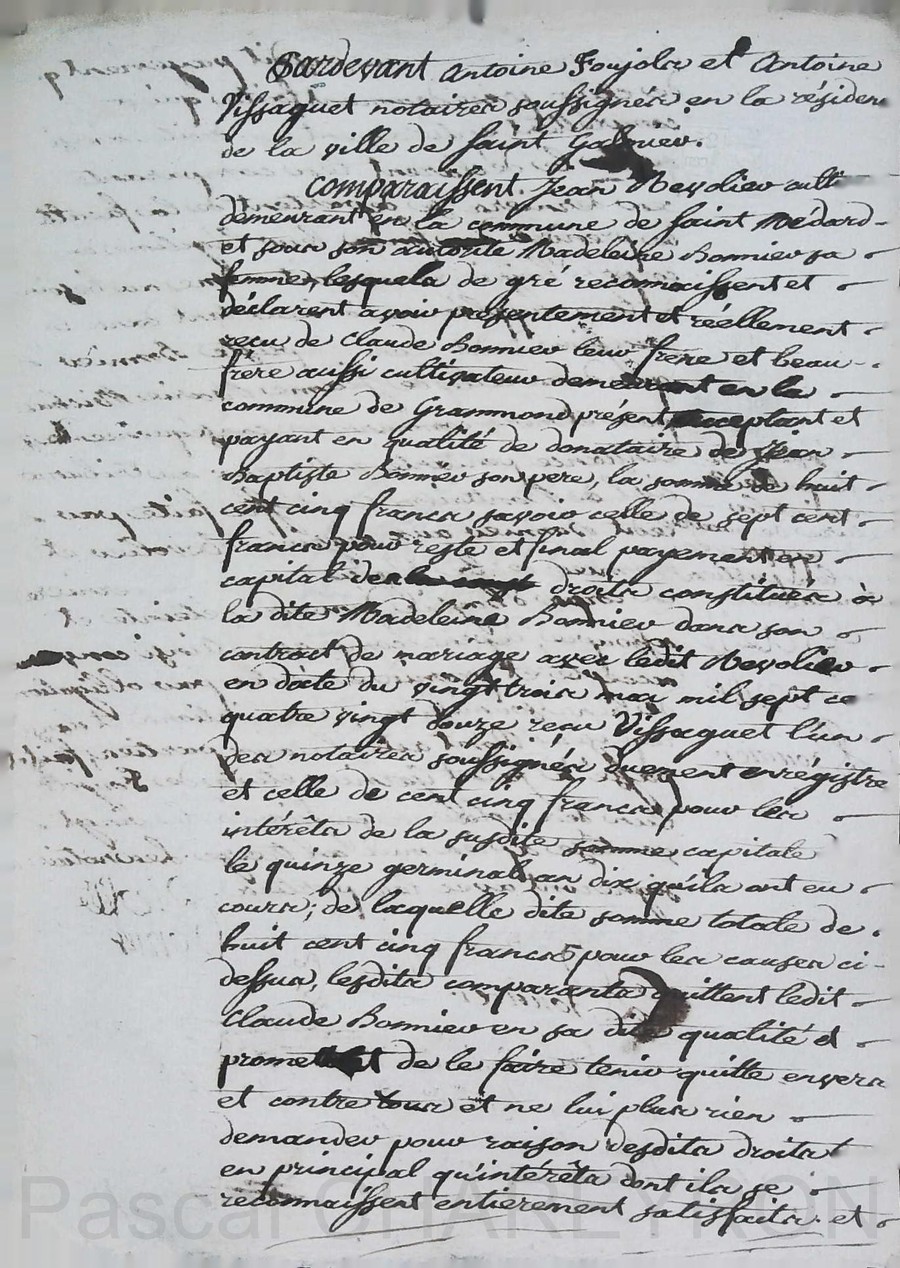 Pardevant Antoine Foujols et Antoine
Vissaguet notaires soussignés en la résiden
de la ville de Saint Galmier.
Comparaissent Jean Revolier culti
demeurant en la commune de Saint Medard
et sous son autorité Madeleine Bonnier sa
femme, lesquels de gré reconnaissent et
déclarent avoir présentement et réellement
reçu de Claude Bonnier leur frère et beau-
frère aussi cultivateur demeurant en la
commune de Grammond présent acceptant et
payant en qualité de donataire de Jean
Baptiste Bonnier son père, la somme de huit
cent cinq francs savoir celle de sept cent
francs pour reste et final payement en
capital des droits constitués à
la dite Madeleine Bonnier dans son
contract de mariage avec ledit Revolier
en date du vingt trois mai mil sept ce
quatre vingt douze reçu Vissaguet l'un
des notaires soussignés duement enrégistré
et celle de cent cinq francs pour les
intérêts de la susdite somme capitale
le quinze germinal an dix qu'ils ont eu
cours; de laquelle dite somme totale de
huit cent cinq francs pour les causes ci-
dessus, lesdits comparants quittent ledit
Claude Bonnier en sa dite qualité et
promettent de le faire tenir quitte envers
et contre tous et ne lui plus rien
demander pour raison desdits droits
en principal qu'intérêts dont ils se
reconnaissent entierement satisfaits. et
Pascal CHAREYRON